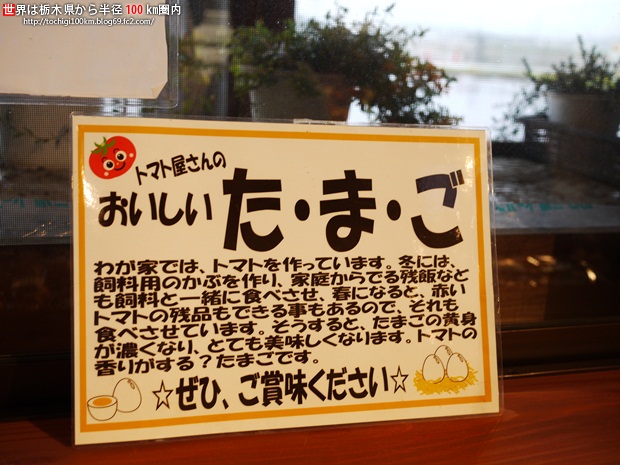 世界は栃木県から半径100㎞圏内
http://tochigi100km.blog69.fc2.com/
トマト屋さんの
おいしい
た・ま・ご
わが家では、トマトを作っています。冬には、
飼料用のかぶを作り、家庭からでる残飯など
も飼料と一緒に食べさせ、春になると、赤い
トマトの残品もできる事もあるので、それも
食べさせています。そうすると、たまごの黄身
が濃くなり、とても美味しくなります。トマトの
香りがする？たまごです。
☆ぜひ、ご賞味ください☆